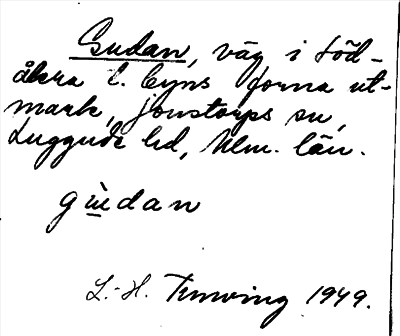 Gudan, väg i Röd-
åkra l. byns forna ut-
mark, Jonstorps sn,
Luggude hd, Mlm. län.
gudan
L.-H. 1949.